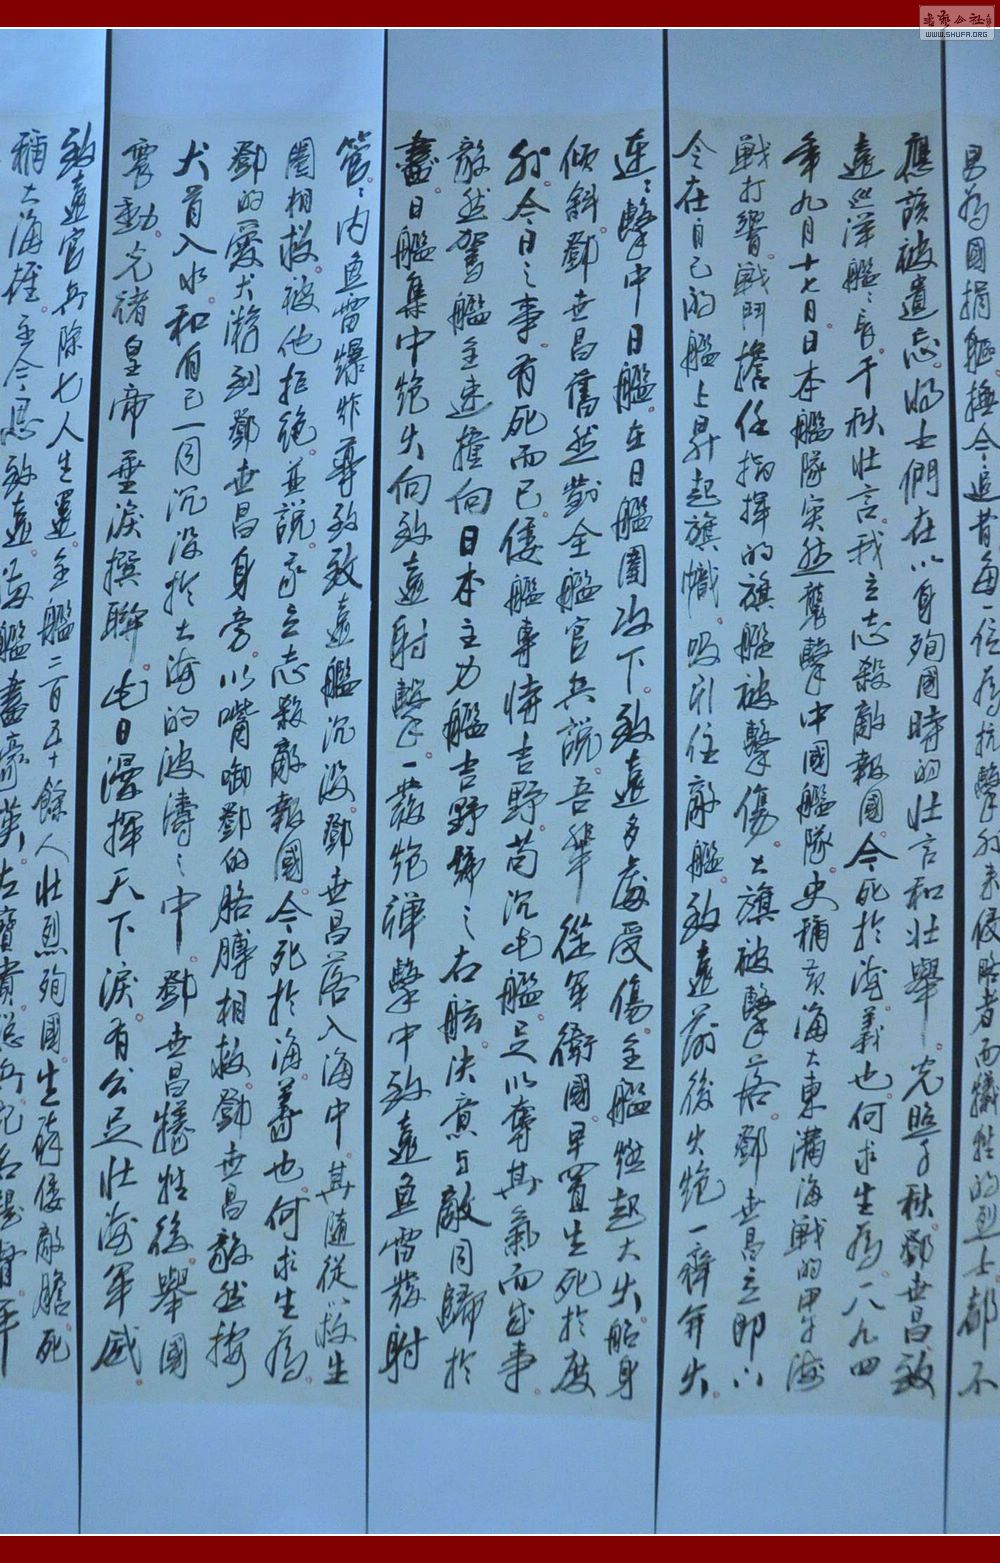 男為國捐軀撫今追昔每一位為抗擊外來侵略者而犧牲的烈士都不
應該被遺忘將士們在以身殉國時的壯言和壯舉光照千秋鄧世昌致
遠巡洋艦艦長千秋壯言我立志殺敵報國今死於海義也何求生為一八九四
年九月十七日日本艦隊突然襲擊中國艦隊史稱黃海大東溝海戰的甲午海
戰打響戰鬥擔任指揮的旗艦被擊傷大旗被擊落鄧世昌立即下
令在自己的艦上昇起旗幟吸引住敵艦致遠前後火炮一齊開火
連々擊中日艦在日艦圍攻下致遠多處受傷全艦燃起大火船身
傾斜鄧世昌奮然對全艦官兵說吾輩從軍衛國早置生死於度
外今日之事有死而已倭艦專恃吉野苟沉此艦足以奪其氣而成事
毅然駕艦全速撞向日本主力艦吉野號之右舷決意与敵同歸於
盡日艦集中炮火向致遠射擊一發炮彈擊中致遠魚雷發射
管々內魚雷爆炸導致致遠艦沉沒鄧世昌落入海中其隨從以救生
圈相救被他拒絕並說我立志殺敵報國今死於海義也何求生為
鄧的愛犬游到鄧世昌身旁以嘴啣鄧的胳膊相救鄧世昌毅然按
犬首入水和自己一同沉沒於大海的波濤之中鄧世昌犧牲後舉國
震動光緒皇帝垂淚撰聯此日漫揮天下淚有公足壯海軍威
致遠官兵除七人生還全艦二百五十餘人壯烈殉國生碎倭敵膽死
稱大海雄至今思致遠海艦盡豪英左寶貴總兵記名提督軍
書藝公社
WWW.SHUFA.ORG